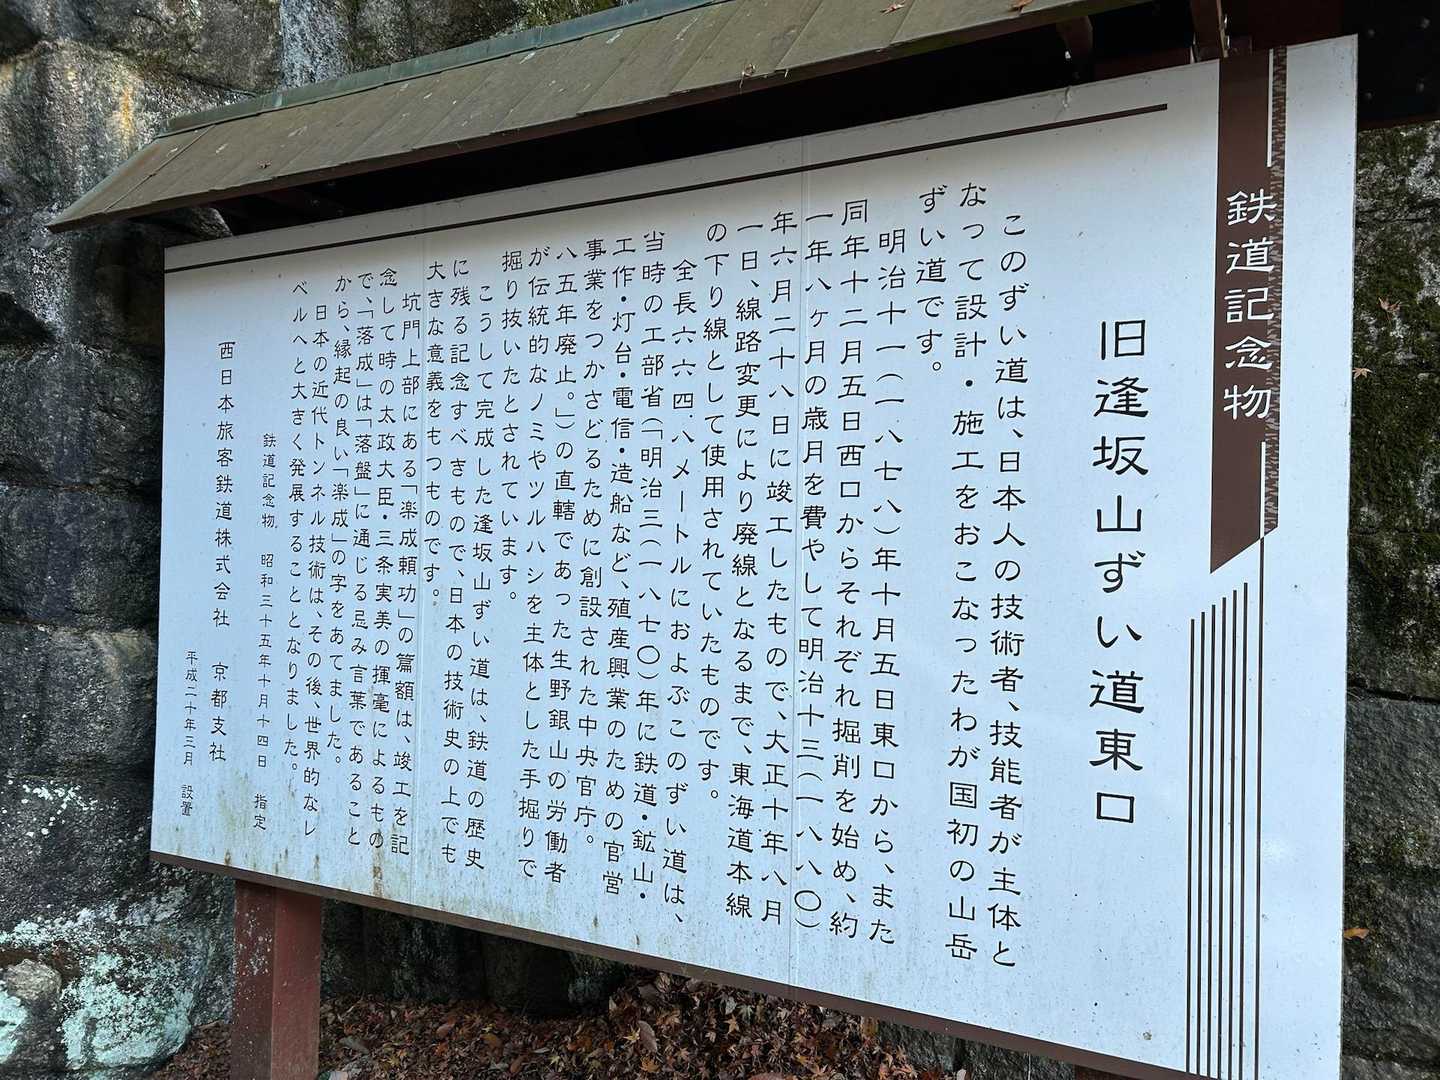 鉄道記念物
旧逢坂山ずい道東口
このずい道は、日本人の技術者、技能者が主体と
なって設計・施工をおこなったわが国初の山岳
ずい道です。
明治十一(一八七八)年十月五日東口から、また
同年十二月五日西口からそれぞれ掘削を始め、約
一年八ヶ月の歳月を費やして明治十三(一八八〇)
年六月二十八日に竣工したもので、大正十年八月
一日、線路変更により廃線となるまで、東海道本線
の下り線として使用されていたものです。
全長六六四.八メートルにおよぶこのずい道は、
当時の工部省(「明治三(一八七〇)年に鉄道・鉱山・
工作・灯台・電信・造船など、殖産興業のための官営
事業をつかさどるために創設された中央官庁。
八五年廃止。」)の直轄であった生野銀山の労働者
が伝統的なノミやツルハシを主体とした手掘りで
掘り抜いたとされています。
こうして完成した逢坂山ずい道は、鉄道の歴史
に残る記念すべきもので、日本の技術史の上でも
大きな意義をもつものです。
坑門上部にある「楽成頼功」の篇額は、竣工を記
念して時の太政大臣・三条実美の揮毫によるもの
で、「落成」は「落盤」に通じる忌み言葉であること
から、縁起の良い「楽成」の字をあてました。
日本の近代トンネル技術は、その後、世界的なレ
ベルへと大きく発展することとなりました。
鉄道記念物 昭和三十五年十月十四日 指定
西日本旅客鉄道株式会社 京都支社
平成二十年三月 設置